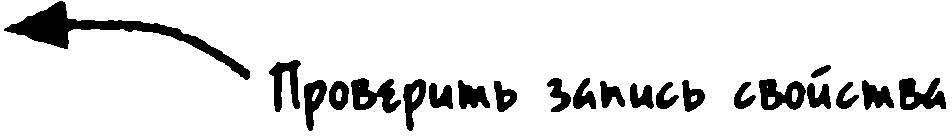 Проверить запись свойства